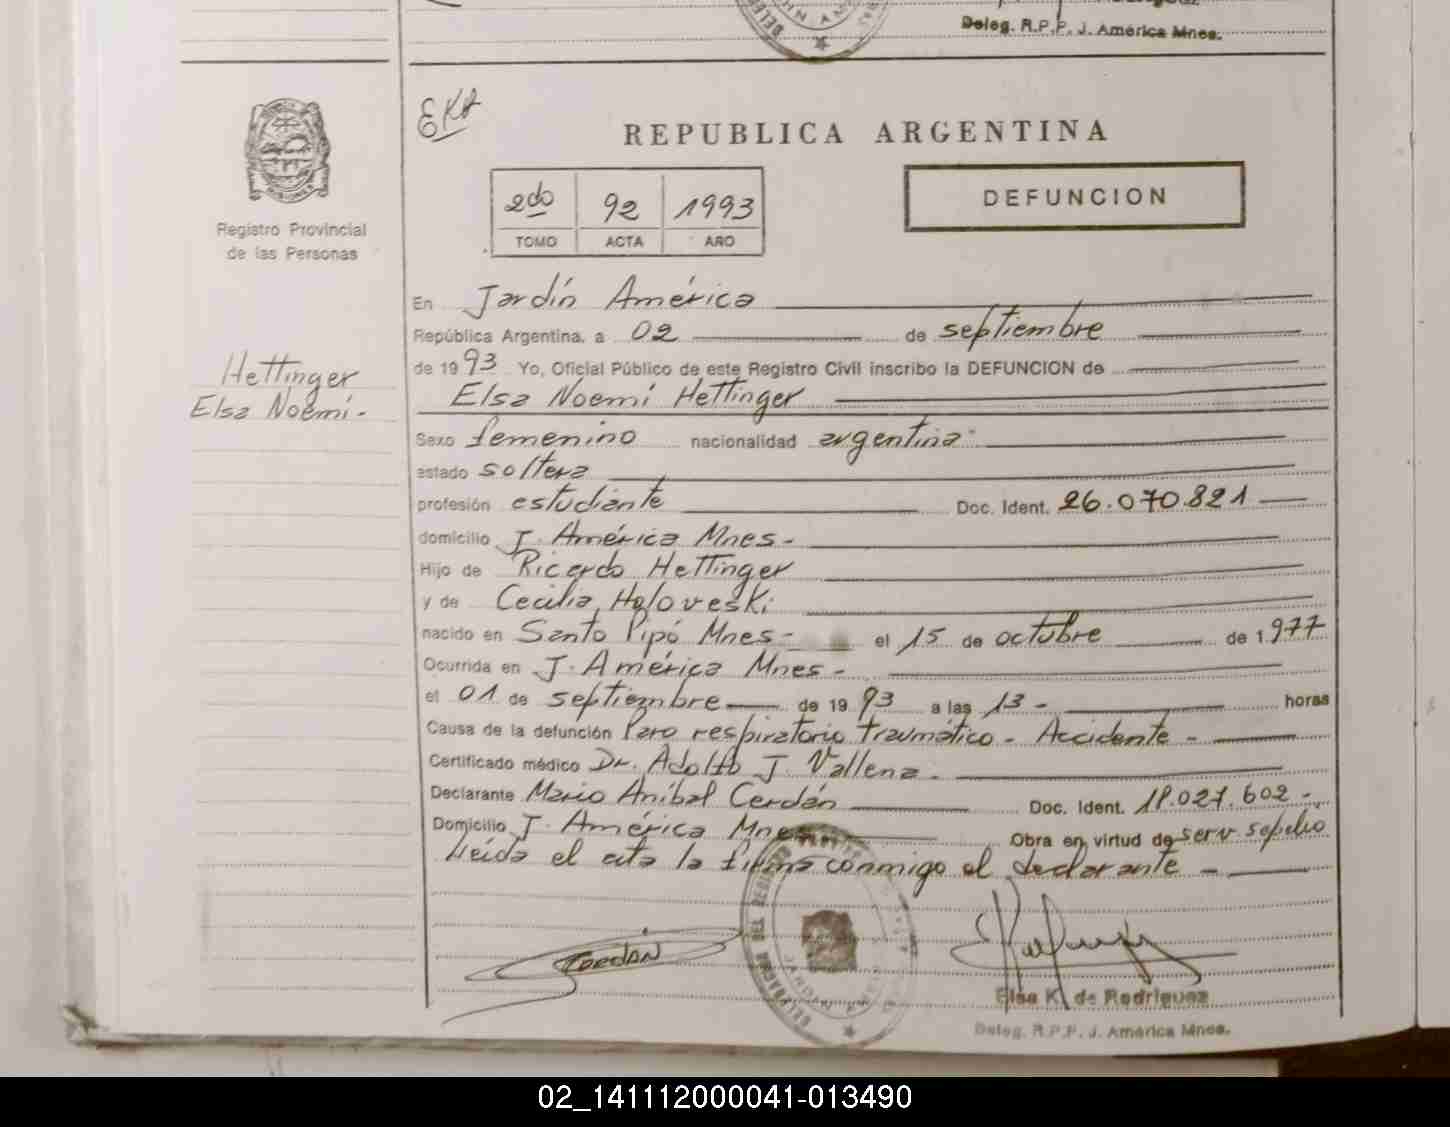 Deleg. R.P.P. J. América Mnes.
EKR
REPUBLICA ARGENTINA
2do 92 1993
TOMO ACTA AÑO
DEFUNCION
Registro Provincial
de las Personas
Hettinger
Elsa Noemí.-
En Jardín América
República Argentina, a 02 de septiembre
de 1993 Yo, Oficial Público de este Registro Civil inscribo la DEFUNCION de
Elsa Noemí Hettinger
Sexo femenino nacionalidad argentina
estado soltera
profesión estudiante Doc. Ident. 26.070.821
domicilio J. América Mnes-
Hijo de Ricardo Hettinger
y de Cecilia Holoveski
nacido en Santo Pipó Mnes- el 15 de octubre de 1.977
Ocurrida en J. América Mnes-
el 01 de septiembre de 1993 a las 13- horas
Causa de la defunción Paro respiratorio traumático - Accidente -
Certificado médico Dr. Adolfo J. Vallena.
Declarante Mario Aníbal Cerdán Doc. Ident. 18.027.602-
Domicilio J. América Mnes Obra en virtud de serv sepelio
Leída el acta la firma conmigo el declarante -
Cerdán
Elsa K. de Rodriguez
Deleg. R.P.P. J. América Mnes.
02_141112000041-013490